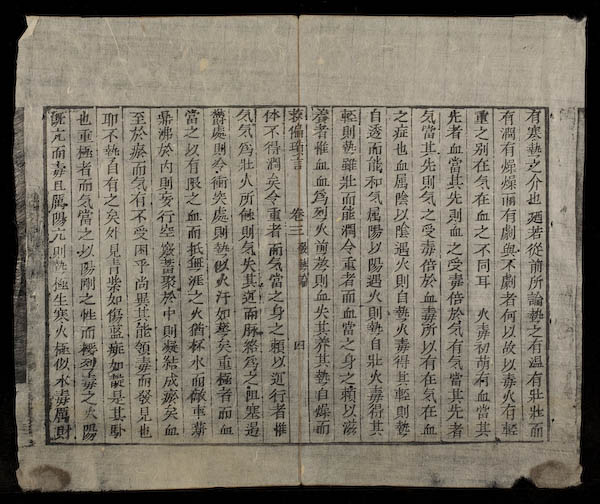 有寒熱之介也廼若從前所論熱之有溫有壯壯而
有潤有燥燥而有劇與不劇者何以故以毒火有輕
重之別在氣在血之不同耳　火毒初萌有血當其
先者血當其先則血之受毒倍於氣有氣當其先者
氣當其先則氣之受毒倍於血毒所以有在氣在血
之症也血屬陰以陰遇火則自熱火毒得其輕則熱
自透而能和氣屬陽以陽遇火則熱自壯火毒得其
輕則熱雖壯而能潤令重者而血當之身之賴以滋
養者惟血血爲烈火前熬則血失其養其熱自燥而
救偏瑣言　卷三　發熱論　四
体不得潤矣令重者而氣當之身之賴以運行者惟
氣氣爲壯火所蝕則氣失其運而脉絡爲之阻塞遏
鬱處則冷衝突處則熱以火汗如蒸矣重極者而血
當之以有限之血而抵無涯之火猶杯水而救車薪
鼎沸於內則妄行空竅蓄聚於中則凝結成瘀矣血
至於瘀而氣有不受困乎尚異其能領毒而發見也
耶不熱自有之矣外見青紫如傷藍癍如靛是其驗
也重極者而氣當之以陽剛之性而櫻烈毒之火陽
旣亢而毒且厲陽亢則熱極生寒火極似水毒厲則